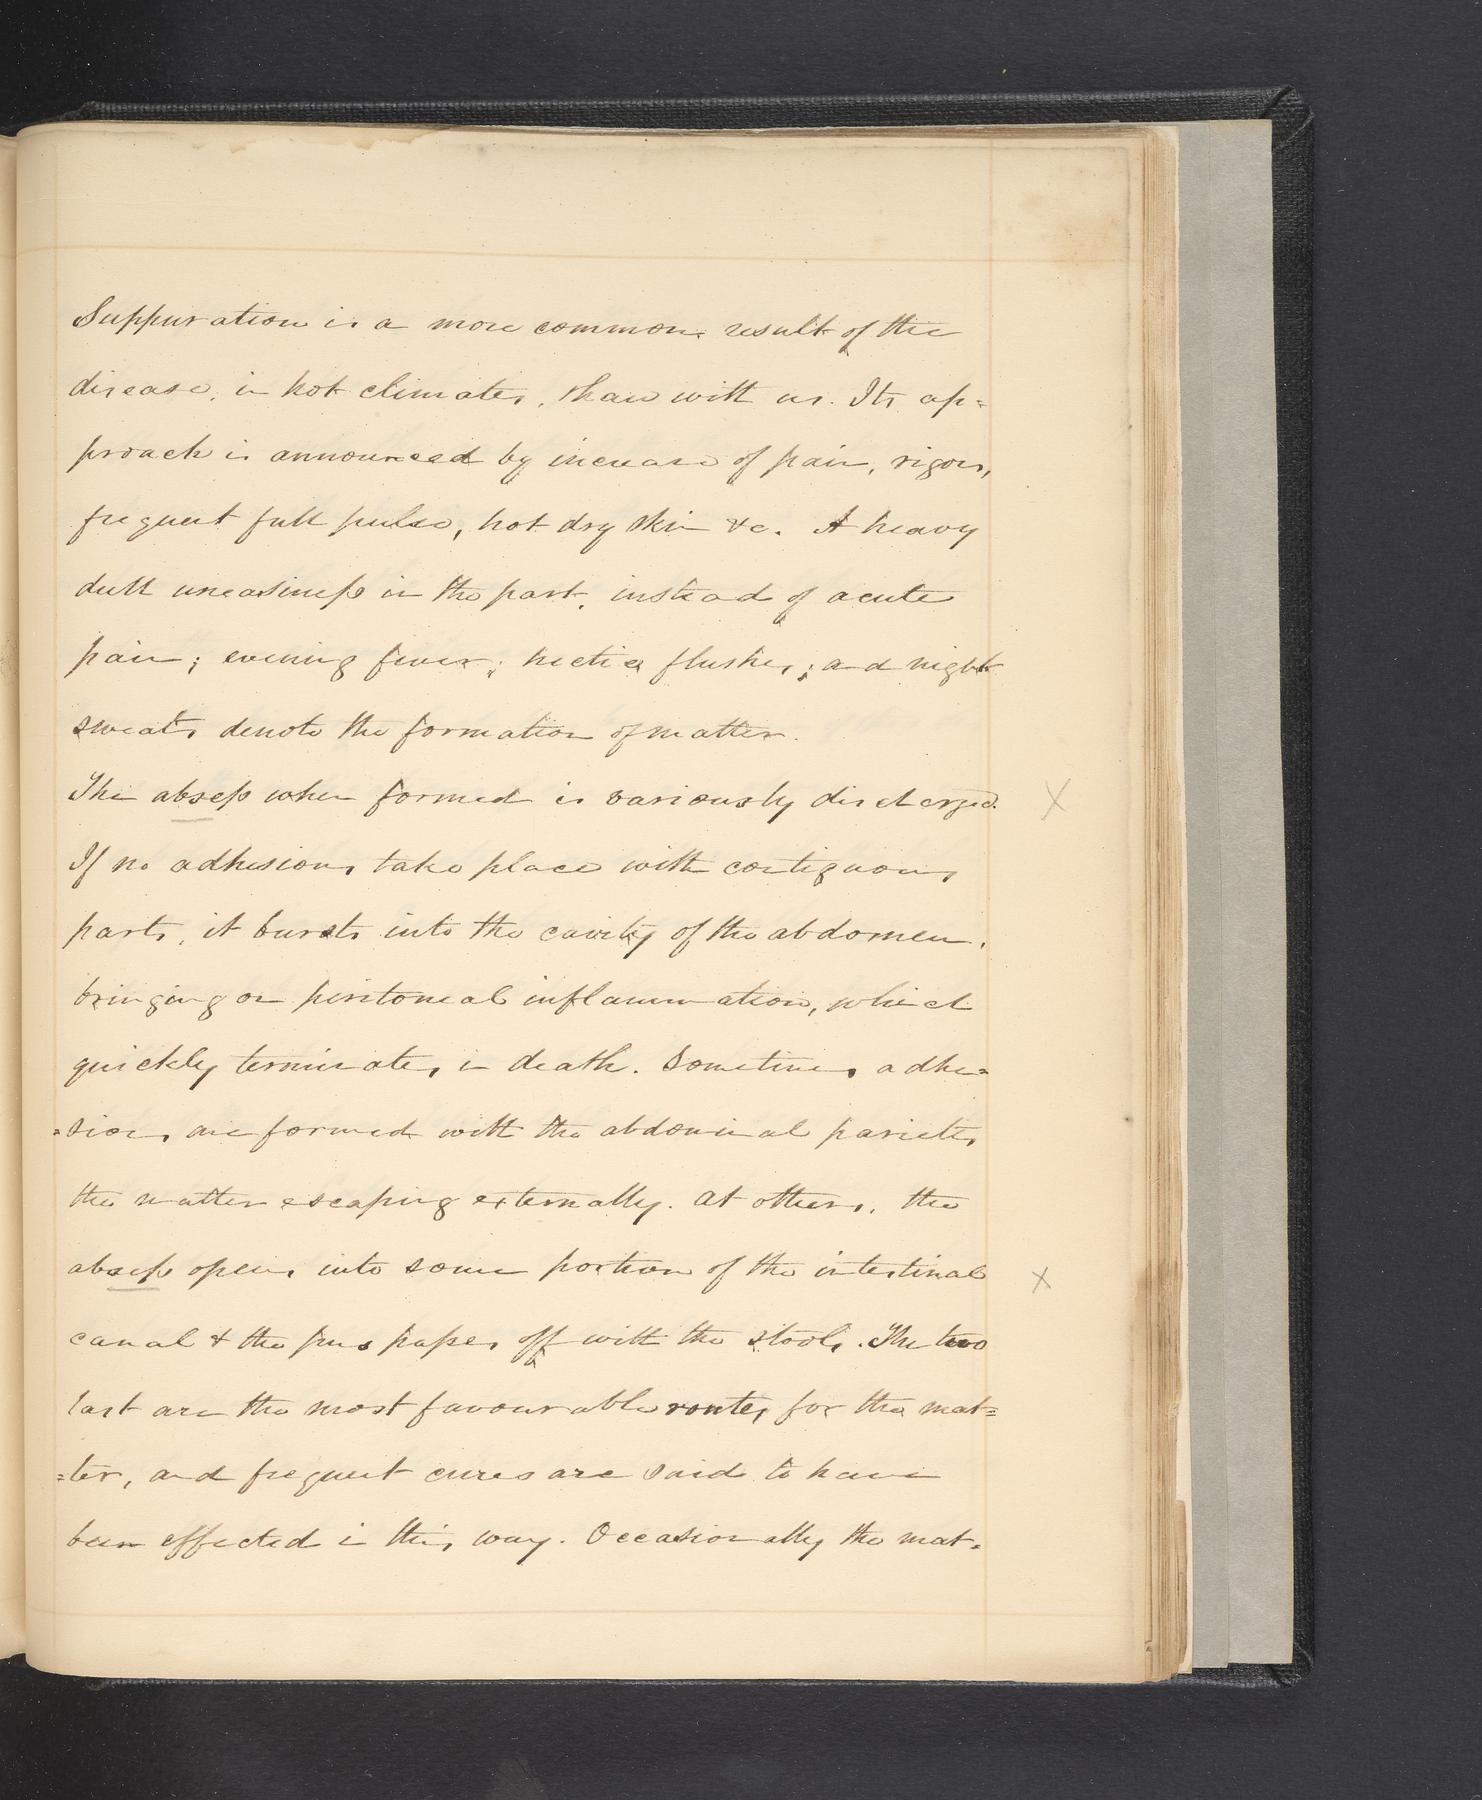 Suppuration is a more common result of the
disease, in hot climates, than with us. Its ap=
proach is announced by increase of pain, rigors,
frequent full pulse, hot dry skin &c. A heavy
dull uneasiness in the part, instead of acute
pain; evening fever; hectic flushes; and night
sweats denote the formation of matter.
The absess when formed is variously discharged.
If no adhesions take place with contiguous
parts, it bursts into the cavity of the abdomen,
bringing on peritoneal inflammation, which
quickly terminates in death. Sometimes adhe=
=sions are formed with the abdominal parietes,
the matter escaping externally. At others, the
absess opens into some portion of the intestinal
canal & the pus passes off with the stools. The two
last are the most favourable routes for the mat=
=ter, and frequent cures are said to have
been effected in this way. Occasionally the mat=